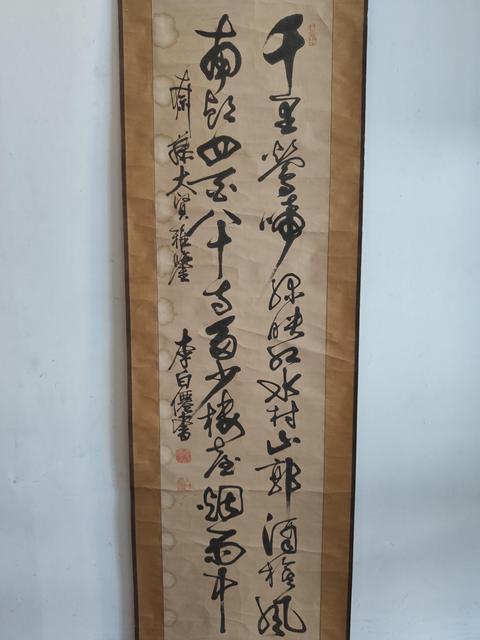 千里鶯啼綠映紅水村山郭酒旗風
南朝四百八十寺多少樓臺烟雨中
齋藤大賢雅鑒 李白僊書